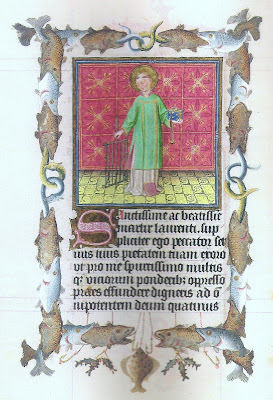 Sanctissime ac beatissie
martir laurenti. sup
pliciter ego peccator ser
uus tuus pietatem tuam exoro
ut pro me spurcissimo multisqz
qz uiciorum ponderibz oppresso
preces effundere digneris ad o
mnipotentem deum quatinus